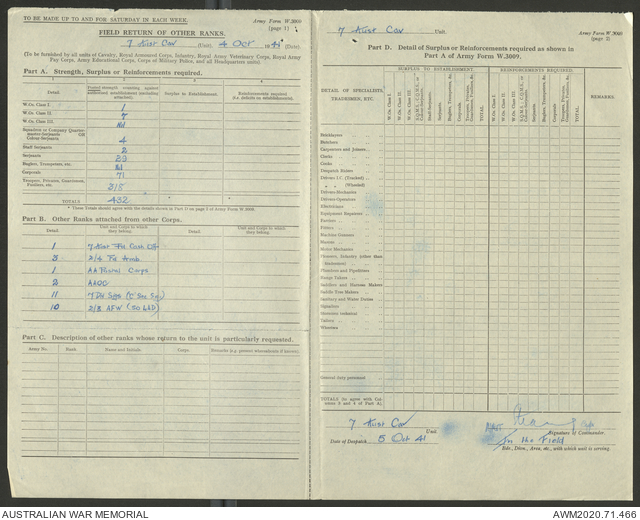 TO BE MADE UP TO AND FOR SATURDAY IN EACH WEEK.
Army Form W.3009
(page 1)
FIELD RETURN OF OTHER RANKS.
7 Aust Cav (Unit) 4 Oct 1941 (Date)
(To be furnished by all units of Cavalry, Royal Armoured Corps, Infantry, Royal Army Veterinary Corps, Royal Army
Pay Corps, Army Educational Corps, Corps of Military Police, and all Headquarters units).
Part A. Strength, Surplus or Reinforcements required.
1 2 3 4
Detail. Posted strength counting against authorised establishment (excluding attached). Surplus to Establishment. Reinforcements required (i.e. deficits on establishment).
W.Os. Class I. 1
W.Os. Class II. 7
W.Os. Class III. Nil
Squadron or Company Quarter-master-Serjeants or Colour-Serjeants 4
Staff Serjeants 2
Serjeants 29
Buglers, Trumpeters, etc. Nil
Corporals 71
Troopers, Privates, Guardsmen, Fusiliers, etc. 318
TOTALS 432
* These Totals should agree with the details shown in Part D on page 2 of Army Form W.3009.
Part B. Other Ranks attached from other Corps.
Detail. Unit and Corps to which they belong. Detail. Unit and Corps to which they belong.
1 7 Aust Fd Cash Off
3 2/4 Fd Amb.
1 AA Postal Corps
2 AAOC
11 7 Div Sigs (C Sec Sig)
10 2/8 AFW (50 LAD)
Part C. Description of other ranks whose return to the unit is particularly requested.
Army No. Rank. Name and Initials. Corps. Remarks (e.g. present whereabouts if known).
7 Aust Cav Unit.
Army Form W.3009
(page 2)
Part D. Detail of Surplus or Reinforcements required as shown in
Part A of Army Form W.3009.
DETAIL OF SPECIALISTS, TRADESMEN, ETC.
SURPLUS TO ESTABLISHMENT. REINFORCEMENTS REQUIRED. REMARKS.
W.Os. Class I. W.Os. Class II. W.Os. Class III. S.Q.M.S., C.Q.M.S., or Colour-Serjeants. Staff-Serjeants. Serjeants. Buglers, Trumpeters, &c. Corporals. Troopers, Privates, Guardsmen, Fusiliers, &c. TOTAL.
W.Os. Class I. W.Os. Class II. W.Os. Class III. S.Q.M.S., C.Q.M.S., or Colour-Serjeants. Staff-Serjeants. Serjeants. Buglers, Trumpeters, &c. Corporals. Troopers, Privates, Guardsmen, Fusiliers, &c. TOTAL.
Butchers
Carpenters and Joiners
Clerks
Cooks
Despatch Riders
Drivers I.C. (Tracked)
" " (Wheeled)
Drivers-Mechanics
Drivers-Operators
Electricians
Equipment Repairers
Farriers
Fitters
Machine Gunners
Masons
Motor Mechanics
Pioneers, Infantry (other than
Plumbers and Pipefitters
Range Takers
Saddlers and Harness Makers
Saddle Tree Makers
Sanitary and Water Duties
Signallers
Storemen technical
Tailors
General duty personnel
TOTALS (to agree with Columns 3 and 4 of Part A).
7 Aust Cav
Unit.
Signature of Commander.
Date of Despatch 5 Oct 41
In the Field
Bde., Divn., Area, etc., with which unit is serving.
AUSTRALIAN WAR MEMORIAL
AWM2020.71.466